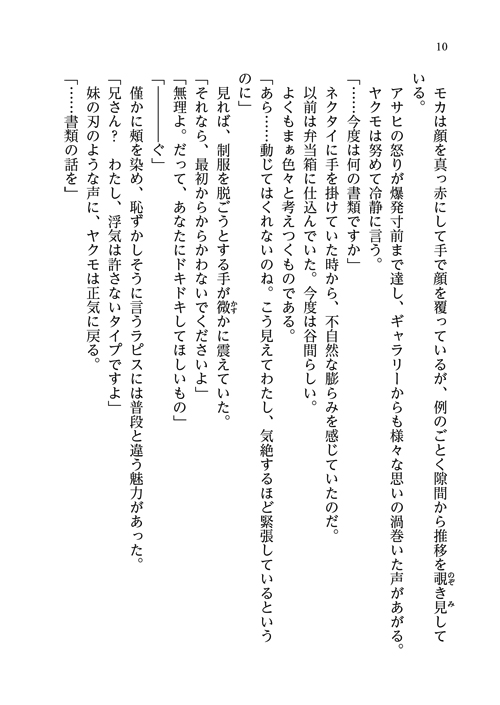 10
モカは顔を真っ赤にして手で顔を覆っているが、例のごとく隙間から推移を覗き見して
いる。
アサヒの怒りが爆発寸前まで達し、ギャラリーからも様々な思いの渦巻いた声があがる。
ヤクモは努めて冷静に言う。
「……今度は何の書類ですか」
ネクタイに手を掛けていた時から、不自然な膨らみを感じていたのだ。
以前は弁当箱に仕込んでいた。今度は谷間らしい。
よくもまぁ色々と考えつくものである。
「あら……動じてはくれないのね。こう見えてわたし、気絶するほど緊張しているという
のに」
見れば、制服を脱ごうとする手が微かに震えていた。
「それなら、最初からからかわないでくださいよ」
「無理よ。だって、あなたにドキドキしてほしいもの」
「――ぐ」
僅かに頬を染め、恥ずかしそうに言うラピスには普段と違う魅力があった。
「兄さん？　わたし、浮気は許さないタイプですよ」
妹の刃のような声に、ヤクモは正気に戻る。
「……書類の話を」